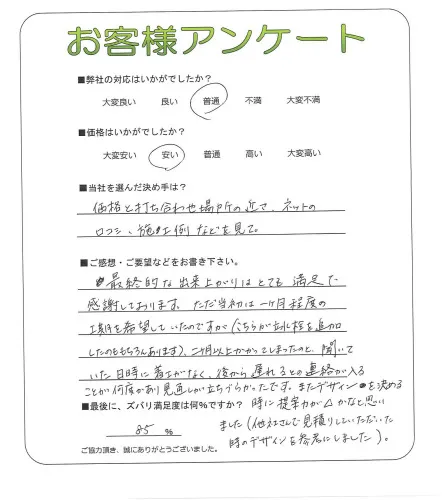 お客様アンケート
■弊社の対応はいかがでしたか？
大変良い 良い 普通 不満 大変不満
■価格はいかがでしたか？
大変安い 安い 普通 高い 大変高い
■当社を選んだ決め手は？
価格と打ち合わせ場所の近さ、ネットの
口コミ、施工例などを見て。
■ご感想・ご要望などをお書き下さい。
最終的な出来上がりはとても満足で
感謝しております。ただ当初は一ヶ月程度の
工期を希望していたのですが（こちらが立水栓を追加
したのももちろんあります）、二ヶ月以上かかってしまったのと、聞いて
いた日時に着工がなく、後から遅れるとの連絡が入る
ことが何度かあり見通しが立ちづらかったです。またデザインを決める
■最後に、ズバリ満足度は何%ですか？ 時に提案力が△かなと思い
85 % ました（他社さんで見積りしていただいた
ご協力頂き、誠にありがとうございました。 時のデザインを参考にしました）。